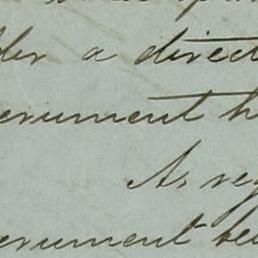 a direct
ernment h
As reg
ernment be